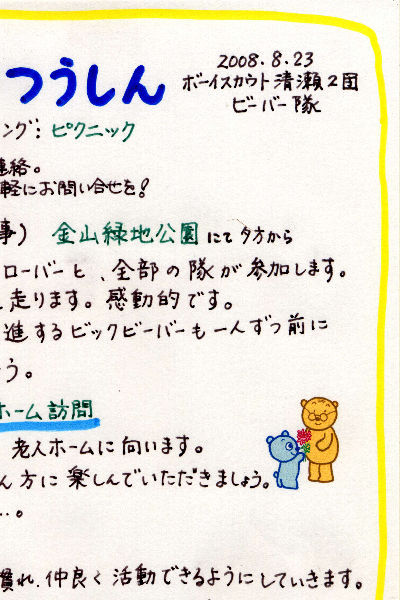 つうしん
2008.8.23
ボーイスカウト清瀬2団
ビーバー隊
ング：ピクニック
連絡。
軽にお問い合せを!
事） 金山緑地公園にて夕方から
ローバーと、全部の隊が参加します。
走ります。感動的です。
進するビックビーバーも一人ずつ前に
う。
ホーム訪問
老人ホームに向います。
ん方に楽しんでいただきましょう。
…。
慣れ、仲良く活動できるようにしていきます。